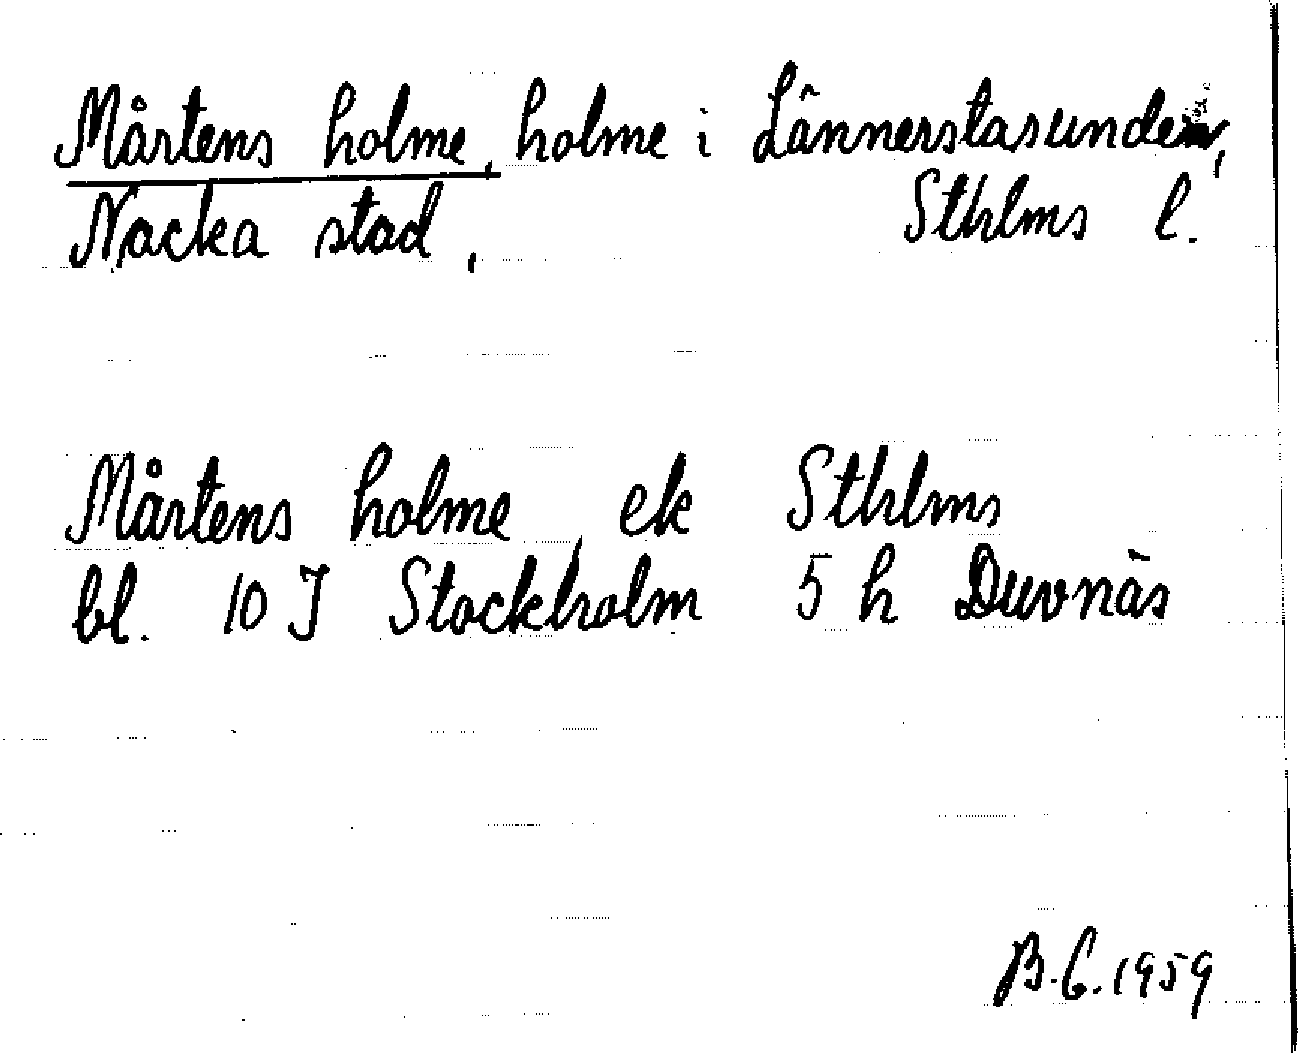 Mårtens holme, holme i Lännerstasunden,
Nacka stad, Sthlms l.
Mårtens holme, ek Sthlms
bl. 10 J Stockholm 5 h Duvnäs
B.C. 1959